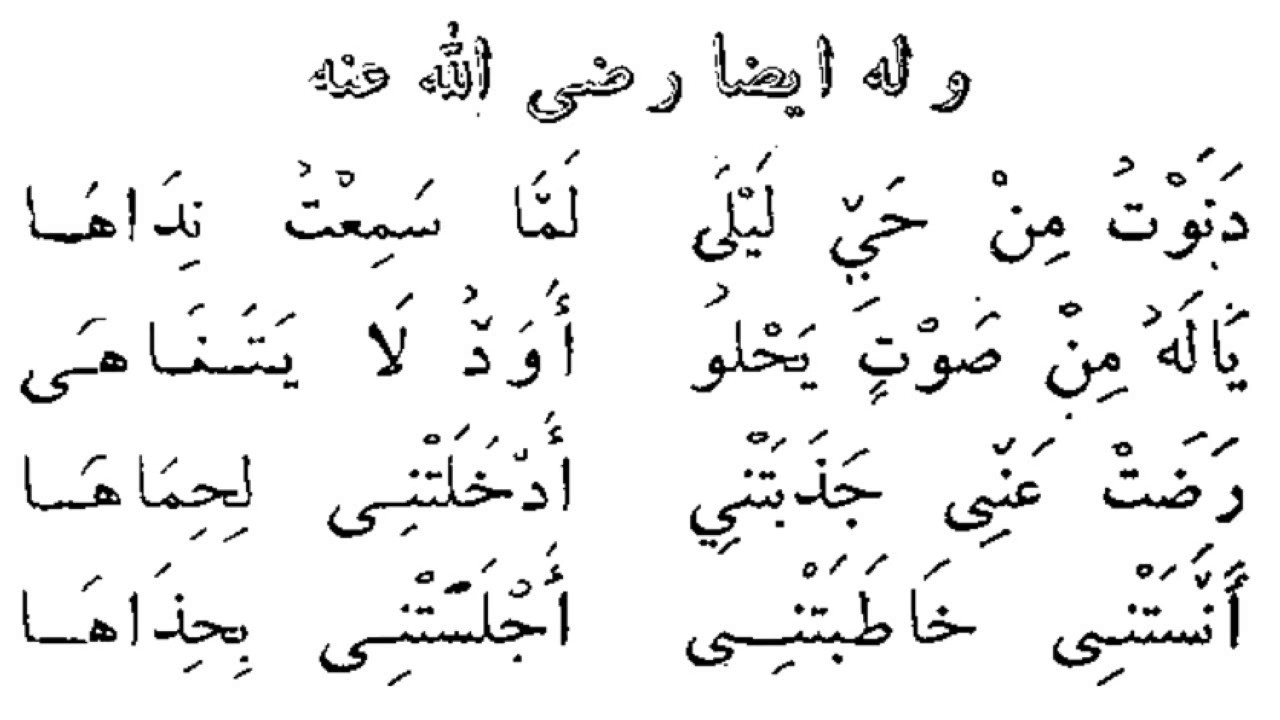 وله ايضا رضى الله عنه
دَنَوْتُ مِنْ حَيِّ لَيْلَى لَمَّا سَمِعْتُ نِدَاهَا
يَالَهُ مِنْ صَوْتٍ يَحْلُو أَوَدُّ لَا يَتَنَاهَى
رَضَتْ عَنِّى جَذَبَتْنِي أَدْخَلَتْنِى لِحِمَاهَا
أَنَّسَتْنِى خَاطَبَتْنِى أَجْلَسَتْنِى بِحِذَاهَا